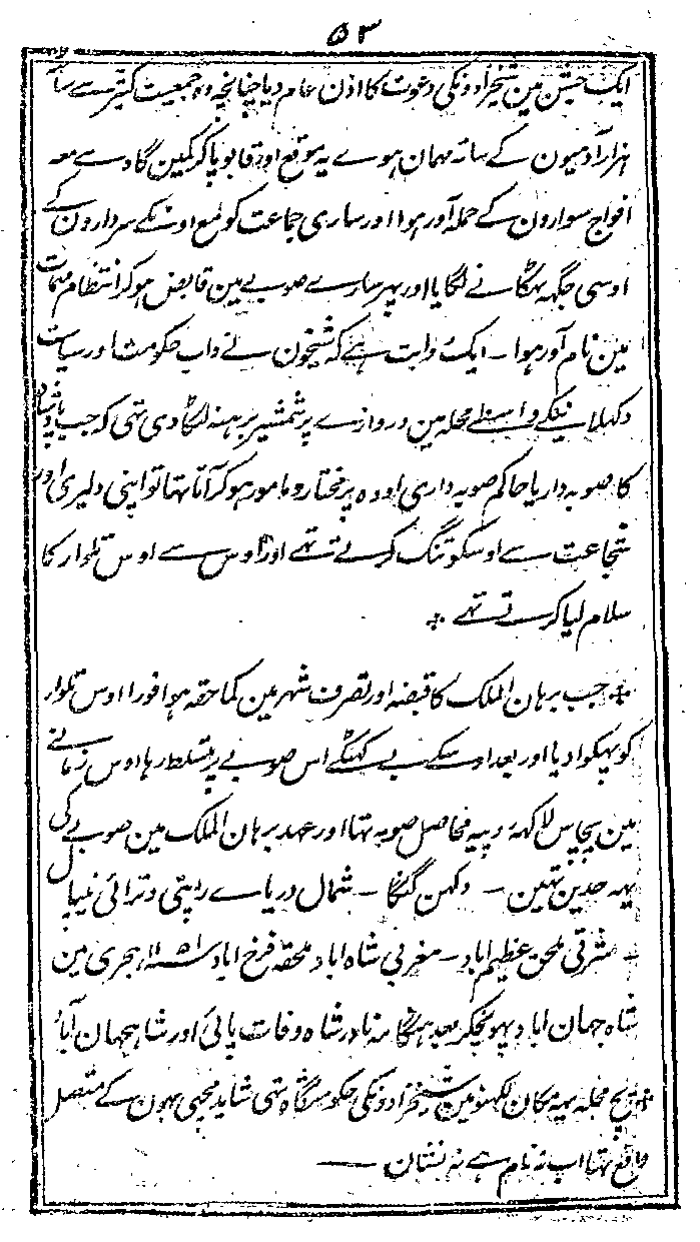 ۵۳
ایک جشن مین شیخزادونکی دعوت کا اذن عام دیا چنانچہ وہ جمعیت کثیر سے سات
ہزار آدمیون کے ساتہ مہمان ہوے یہ موقع اور قابو پاکر کمین گاہ سے معہ
افواج سوارون کے حملہ آور ہوا اور ساری جماعت کو مع اونکے سردارون کے
اوسی جگہہ ٹہکانے لگایا اور پہر سارے صوبے مین قابض ہوکر انتظام مہمات
مین نام آور ہوا - ایک روایت ہے کہ شیخون نے داب حکومت اور سیاست
دکہلانیکے واسطے محلہ مین دروازے پر شمشیر برہنہ لٹکا دی تہی کہ جب بادشاہ
کا صوبہ دار یا حاکم صوبہ داری اودہ پر مختار و مامور ہوکر آتا تہا تو اپنی دلیری اور
شجاعت سے اوسکو تنگ کرتے تہے اور اوس سے اوس تلوار کا
سلام لیا کرتے تہے ٭
٭ جب برہان الملک کا قبضہ اور تصرف شہر مین کماحقہ ہوا فورا اوس تلوار
کو پہکوا دیا اور بعد اوسکے بے کہٹکے اس صوبے پر مسلط رہا اوس زمانے
مین پچاس لاکہہ روپیہ محاصل صوبہ تہا اور عہد برہان الملک مین صوبے کی
یہہ حدین تہین - دکہن گنگا - شمال دریاے راپتی و ترائی نیپال
- مشرقی ملحق عظیم اباد - مغربی شاہ اباد ملحقہ فرخ اباد سنہ ۱۱۵۱ ہجری مین
شاہ جہان اباد پہونچکر بعد ہنگامہ نادر شاہ وفات پائی اور شاہجہان آباد
٭ پنچ محلہ یہہ مکان لکہنؤ مین شیخزادونکی حکومتگاہ تہی شاید مچہی بہون کے متصل
واقع تہا اب نہ نام ہے نہ نشان —